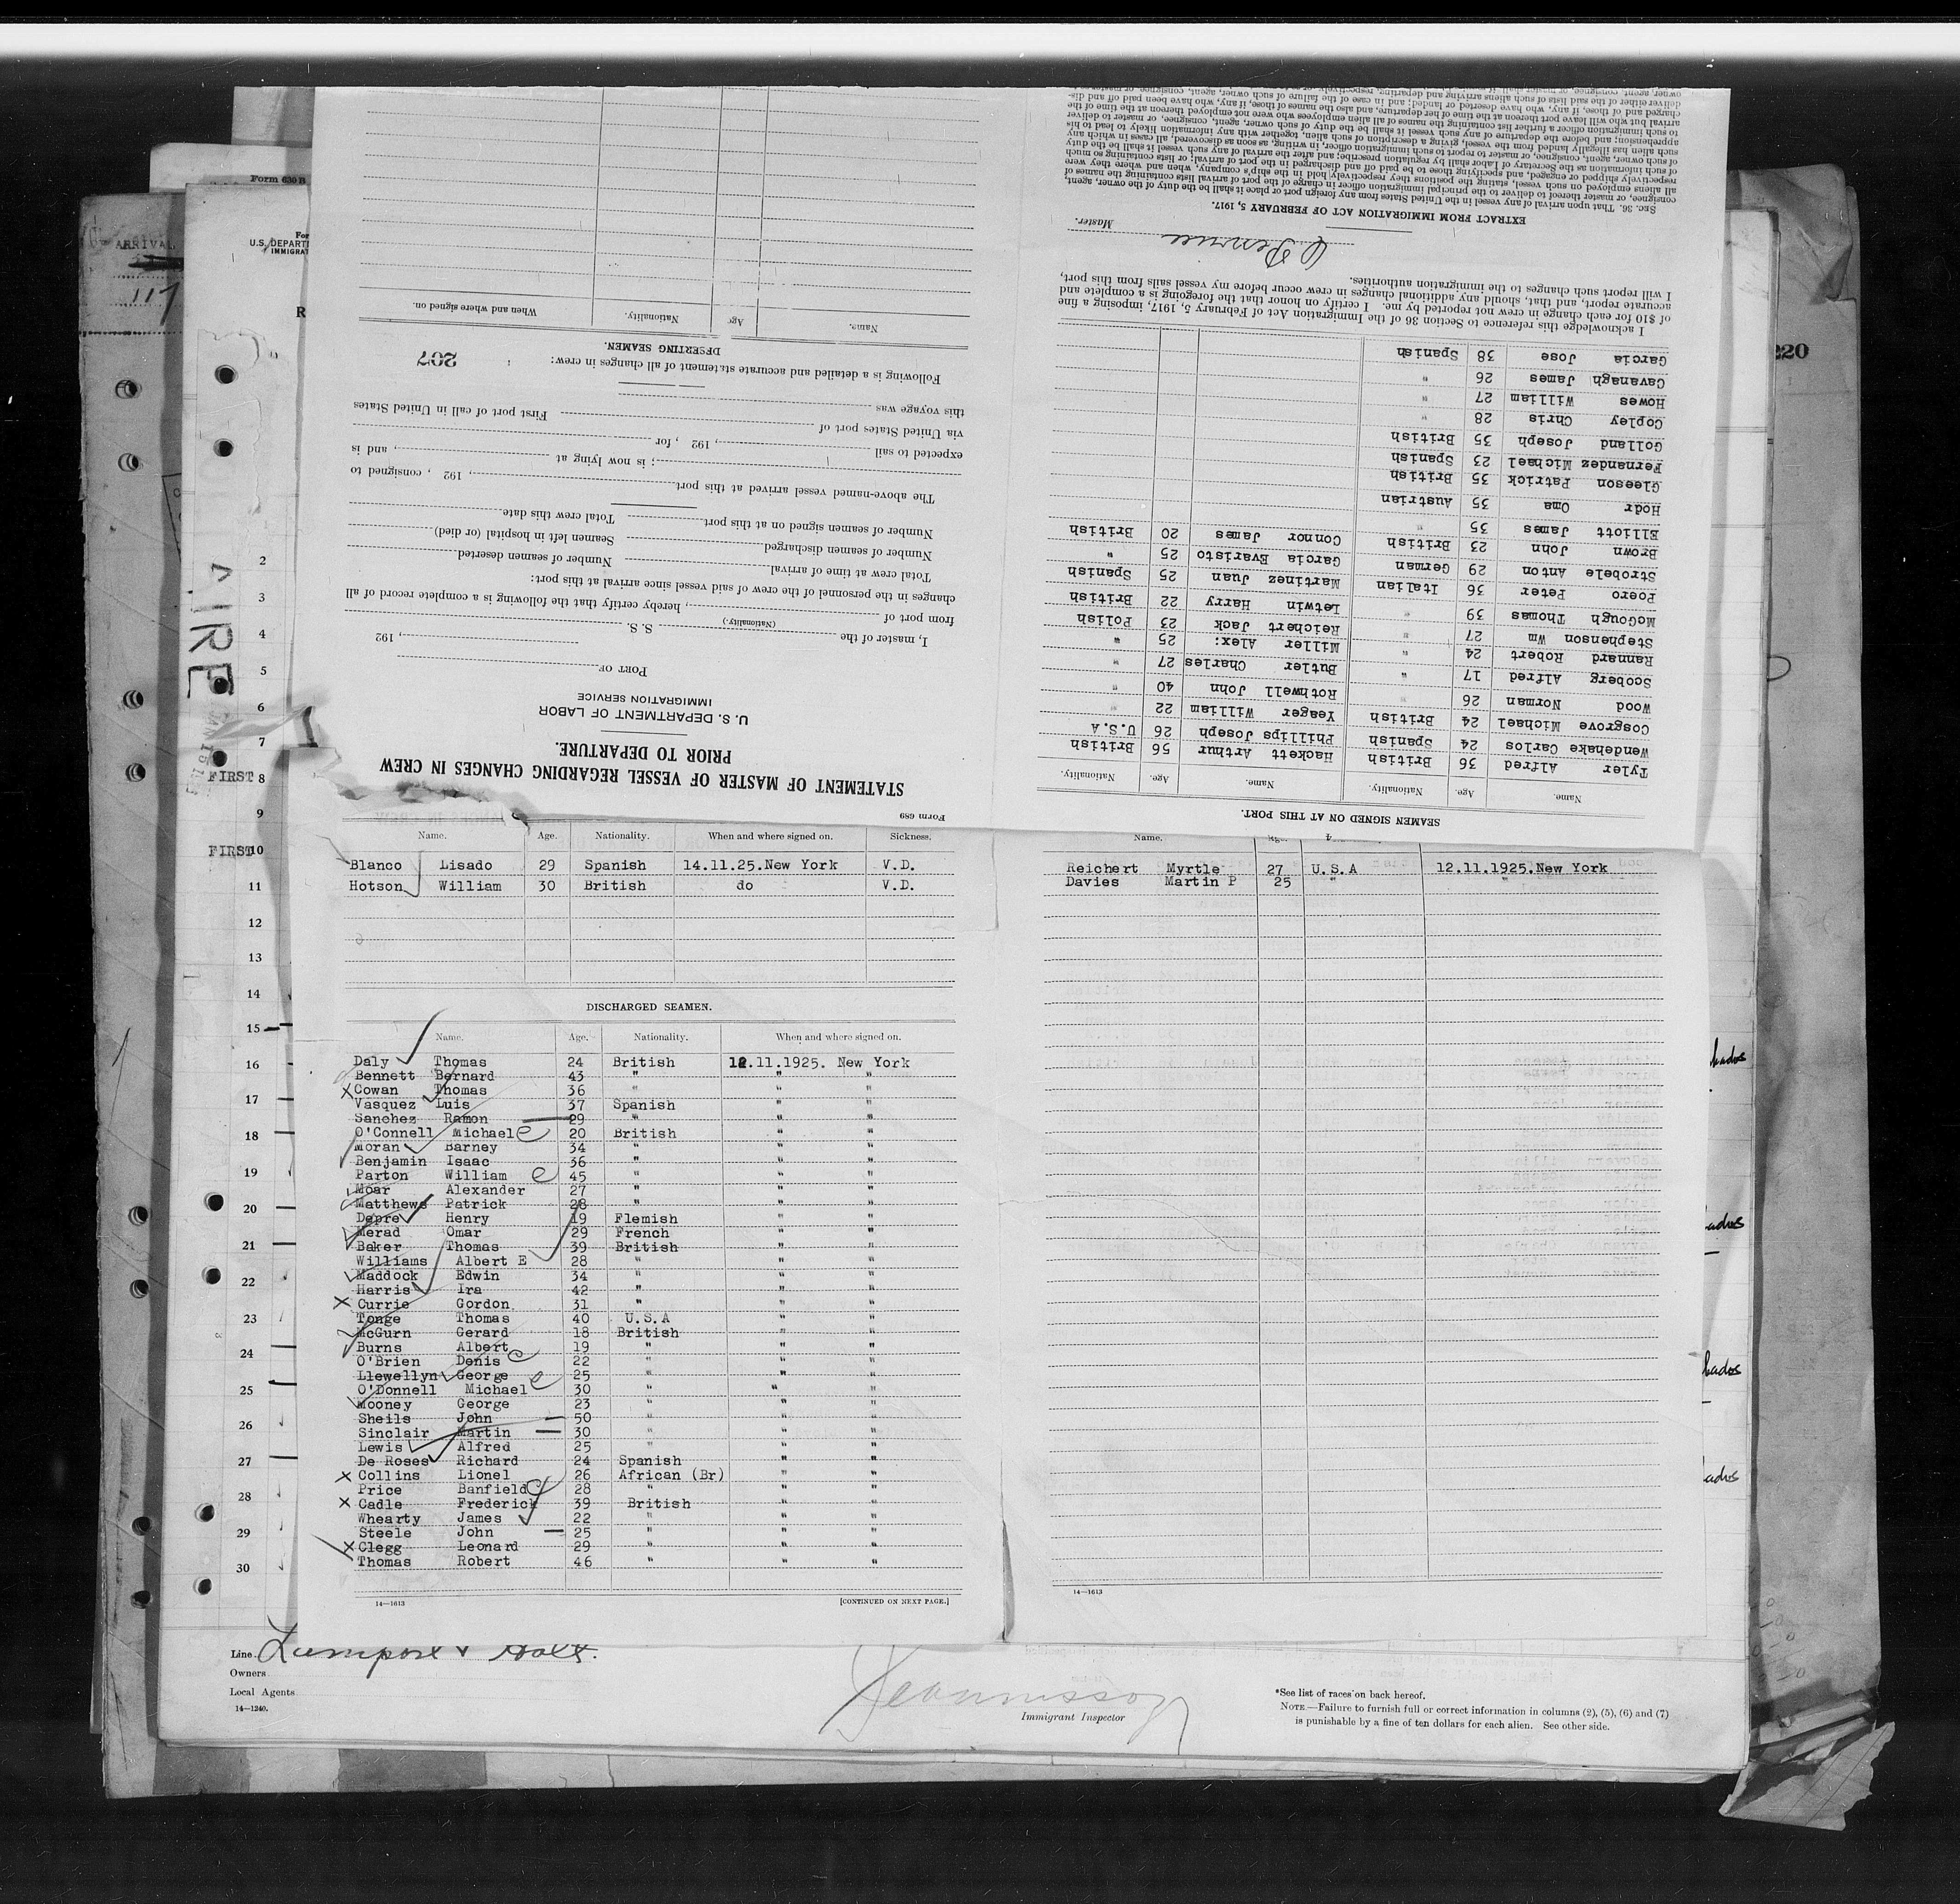 Form 630 B
ARRIVAL
117
U.S. DEPARTM
IMMIGRAT
220
Form 689
STATEMENT OF MASTER OF VESSEL REGARDING CHANGES IN CREW
PRIOR TO DEPARTURE.
U. S. DEPARTMENT OF LABOR
IMMIGRATION SERVICE
PORT OF
, 192
I, master of the S. S.
(Nationality.)
from port of , hereby certify that the following is a complete record of all
changes in the personnel of the crew of said vessel since arrival at this port:
Total crew at time of arrival Number of seamen deserted
Number of seamen discharged Seamen left in hospital (or died)
Number of seamen signed on at this port Total crew this date
The above-named vessel arrived at this port , 192 , consigned to
; is now lying at , and is
expected to sail , 192 , for
via United States port of First port of call in United States
this voyage was
Following is a detailed and accurate statement of all changes in crew:
207
DESERTING SEAMEN.
Name. Age Nationality. When and where signed on.
SEAMEN SIGNED ON AT THIS PORT.
Name. Age. Nationality. Name. Age. Nationality.
Tyler Alfred 36 British Hackett Arthur 56 British
Wendehake Carlos 24 Spanish Phillips Joseph 26 U.S.A
Cosgrove Michael 24 British Yeager William 22 "
Wood Norman 26 " Rothwell John 40 "
Scoberg Alfred 17 " Butler Charles 27 "
Rannard Robert 24 " Miller Alex: 25 "
Stephenson Wm 27 " Reichert Jack 23 Polish
McGough Thomas 39 " Letwin Harry 22 British
Poero Peter 36 Italian Martinez Juan 25 Spanish
Strobele Anton 29 German Garcia Evaristo 25 "
Brown John 23 British Connor James 20 British
Elliott James 35 "
Hodr Oma 35 Austrian
Gleeson Patrick 35 British
Fernandez Michael 23 Spanish
Golland Joseph 35 British
Copley Chris 28 "
Howes William 27 "
Cavanagh James 26 "
Garcia Jose 38 Spanish
I acknowledge this reference to Section 36 of the Immigration Act of February 5, 1917, imposing a fine
of $10 for each change in crew not reported by me. I certify on honor that the foregoing is a complete and
accurate report, and that, should any additional changes in crew occur before my vessel sails from this port,
I will report such changes to the immigration authorities.
Master.
EXTRACT FROM IMMIGRATION ACT OF FEBRUARY 5, 1917.
SEC. 36. That upon arrival of any vessel in the United States from any foreign port or place it shall be the duty of the owner, agent,
consignee, or master thereof to deliver to the principal immigration officer in charge of the port of arrival lists containing the names of
all aliens employed on such vessel, stating the positions they respectively hold in the ship's company, when and where they were
respectively shipped or engaged, and specifying those to be paid off and discharged in the port of arrival; or lists containing so much
of such information as the Secretary of Labor shall by regulation prescribe; and after the arrival of any such vessel it shall be the duty
of such owner, agent, consignee, or master to report to such immigration officer, in writing, as soon as discovered, all cases in which any
such alien has illegally landed from the vessel, giving a description of such alien, together with any information likely to lead to his
apprehension; and before the departure of any such vessel it shall be the duty of such owner, agent, consignee, or master to deliver
to such immigration officer a further list containing the names of all alien employees who were not employed thereon at the time of the
arrival but who will leave port thereon at the time of her departure, and also the names of those, if any, who have been paid off and dis-
charged and of those, if any, who have deserted or landed; and in case of the failure of such owner, agent, consignee, or master to
deliver either of the said lists of such aliens arriving and departing, respectively,
Name. Age. Nationality. When and where signed on. Sickness.
Blanco Lisado 29 Spanish 14.11.25.New York V.D.
Hotson William 30 British do V.D.
Name. Age.
Reichert Myrtle 27 U.S.A 12.11.1925.New York
Davies Martin P 25 " "
DISCHARGED SEAMEN.
Name. Age. Nationality. When and where signed on.
Daly Thomas 24 British 12.11.1925. New York
Bennett Bernard 43 " " "
x Cowan Thomas 36 " " "
Vasquez Luis 37 Spanish " "
Sanchez Ramon 29 " " "
O'Connell Michael 20 British " "
Moran Barney 34 " " "
Benjamin Isaac 36 " " "
Parton William 45 " " "
Moar Alexander 27 " " "
Matthews Patrick 28 " " "
Depre Henry 19 Flemish " "
Merad Omar 29 French " "
Baker Thomas 39 British " "
Williams Albert E 28 " " "
Maddock Edwin 34 " " "
Harris Ira 42 " " "
x Currie Gordon 31 " " "
Tonge Thomas 40 U.S.A " "
McGurn Gerard 18 British " "
Burns Albert 19 " " "
O'Brien Denis 22 " " "
Llewellyn George 25 " " "
O'Donnell Michael 30 " " "
Mooney George 23 " " "
Sheils John 50 " " "
Sinclair Martin 30 " " "
Lewis Alfred 25 " " "
De Roses Richard 24 Spanish " "
x Collins Lionel 26 African (Br) " "
Price Banfield 28 " " "
x Cadle Frederick 39 British " "
Whearty James 22 " " "
Steele John 25 " " "
x Clegg Leonard 29 " " "
Thomas Robert 46 " " "
14—1613
[CONTINUED ON NEXT PAGE.]
14—1613
2
3
4
5
6
7
FIRST 8
9
FIRST 10
11
12
13
14
15
16
17
18
19
20
21
22
23
24
25
26
27
28
29
30
Line Lamport & Holt.
Owners
Local Agents
14—1240.
Immigrant Inspector
*See list of races on back hereof.
NOTE.—Failure to furnish full or correct information in columns (2), (5), (6) and (7)
is punishable by a fine of ten dollars for each alien. See other side.